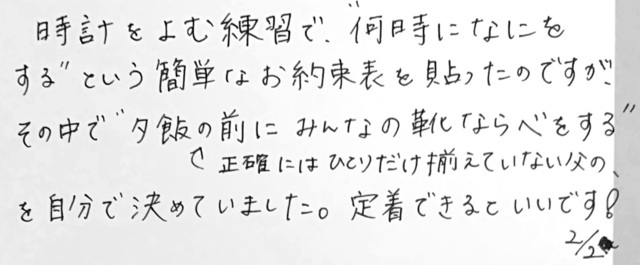 時計をよむ練習で、"何時になにを
する"という簡単なお約束表を貼ったのですが、
その中で"夕飯の前に みんなの靴ならべをする"
↑正確にはひとりだけ揃えていない父の、
を自分で決めていました。定着できるといいです!
2/2